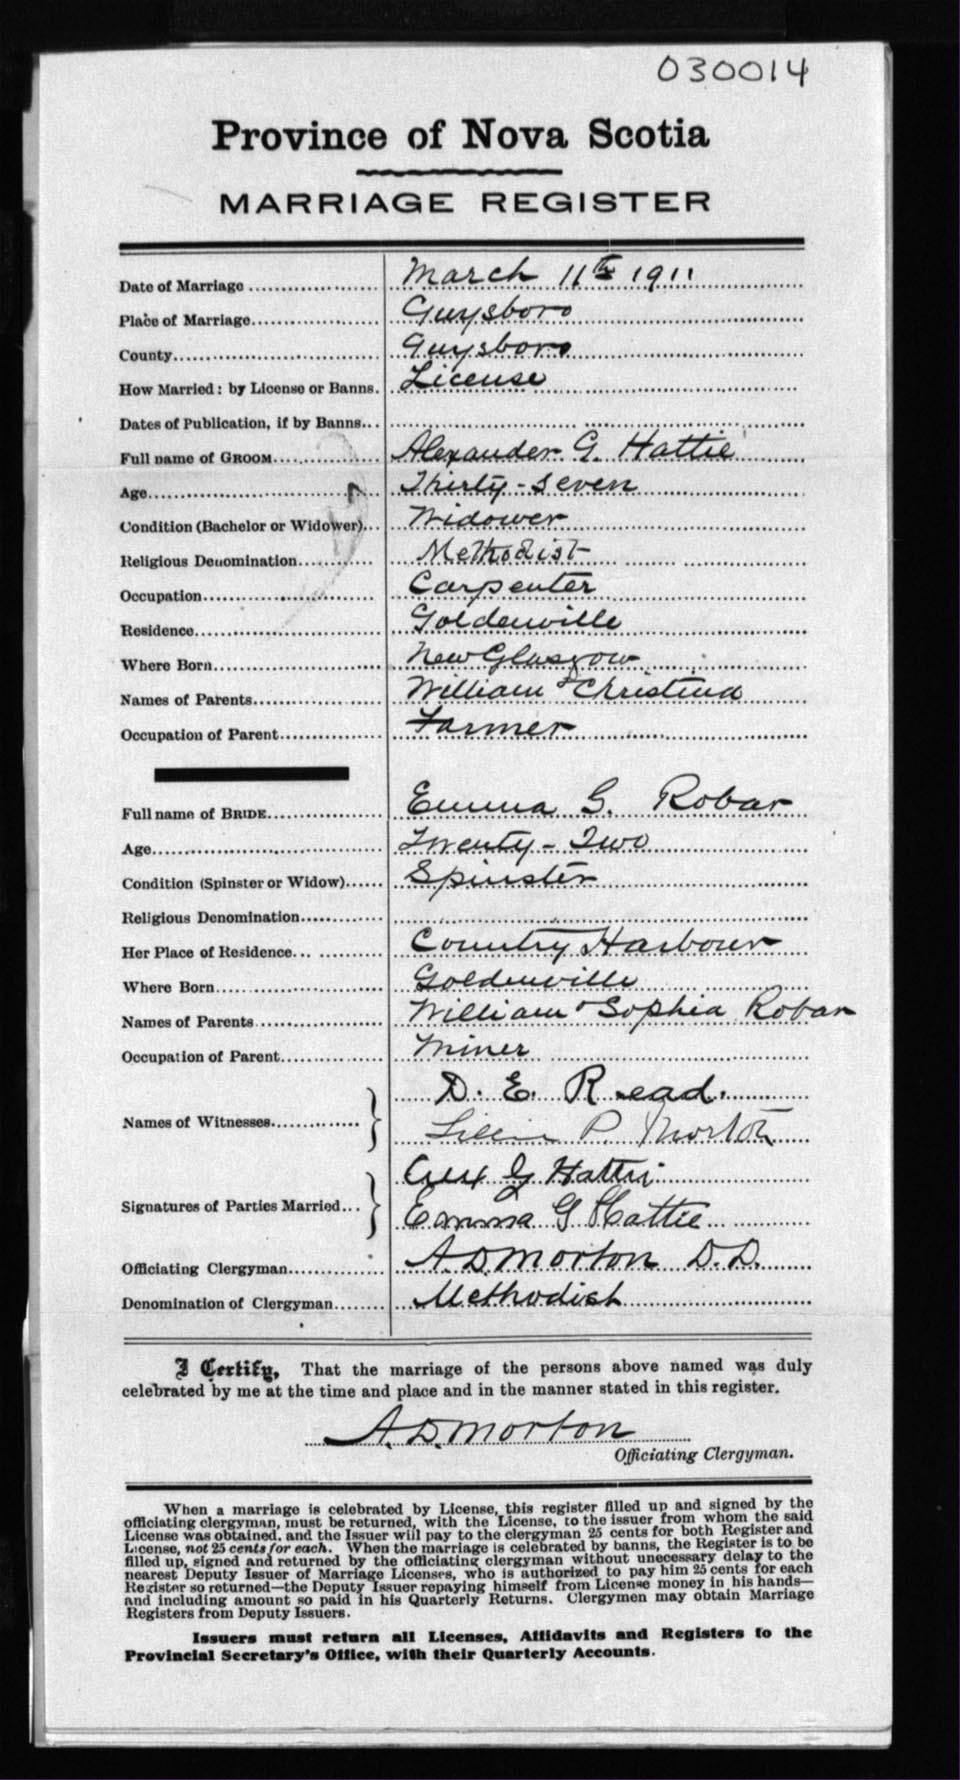 030014
Province of Nova Scotia
MARRIAGE REGISTER
Date of Marriage March 11th 1911
Place of Marriage Guysboro
County Guysboro
How Married: by License or Banns. License
Dates of Publication, if by Banns
Full name of GROOM Alexander G. Hattie
Age Thirty-Seven
Condition (Bachelor or Widower) Widower
Religious Denomination Methodist
Occupation Carpenter
Residence Goldenville
Where Born New Glasgow
Names of Parents William & Christina
Occupation of Parent Farmer
Full name of BRIDE Emma G. Robar
Age Twenty-Two
Condition (Spinster or Widow) Spinster
Religious Denomination
Her Place of Residence Country Harbour
Where Born Goldenville
Names of Parents William & Sophia Robar
Occupation of Parent Miner
Names of Witnesses D. E. Read.
Lillian P. Morton
Signatures of Parties Married Alex G Hattie
Emma G Hattie
Officiating Clergyman A. D. Morton D.D.
Denomination of Clergyman Methodist
I Certify, That the marriage of the persons above named was duly
celebrated by me at the time and place and in the manner stated in this register.
A. D. Morton
Officiating Clergyman.
When a marriage is celebrated by License, this register filled up and signed by the
officiating clergyman, must be returned, with the License, to the issuer from whom the said
License was obtained, and the Issuer will pay to the clergyman 25 cents for both Register and
License, not 25 cents for each. When the marriage is celebrated by banns, the Register is to be
filled up, signed and returned by the officiating clergyman without unnecessary delay to the
nearest Deputy Issuer of Marriage Licenses, who is authorized to pay him 25 cents for each
Register so returned—the Deputy Issuer repaying himself from License money in his hands—
and including amount so paid in his Quarterly Returns. Clergymen may obtain Marriage
Registers from Deputy Issuers.
Issuers must return all Licenses, Affidavits and Registers to the
Provincial Secretary's Office, with their Quarterly Accounts.